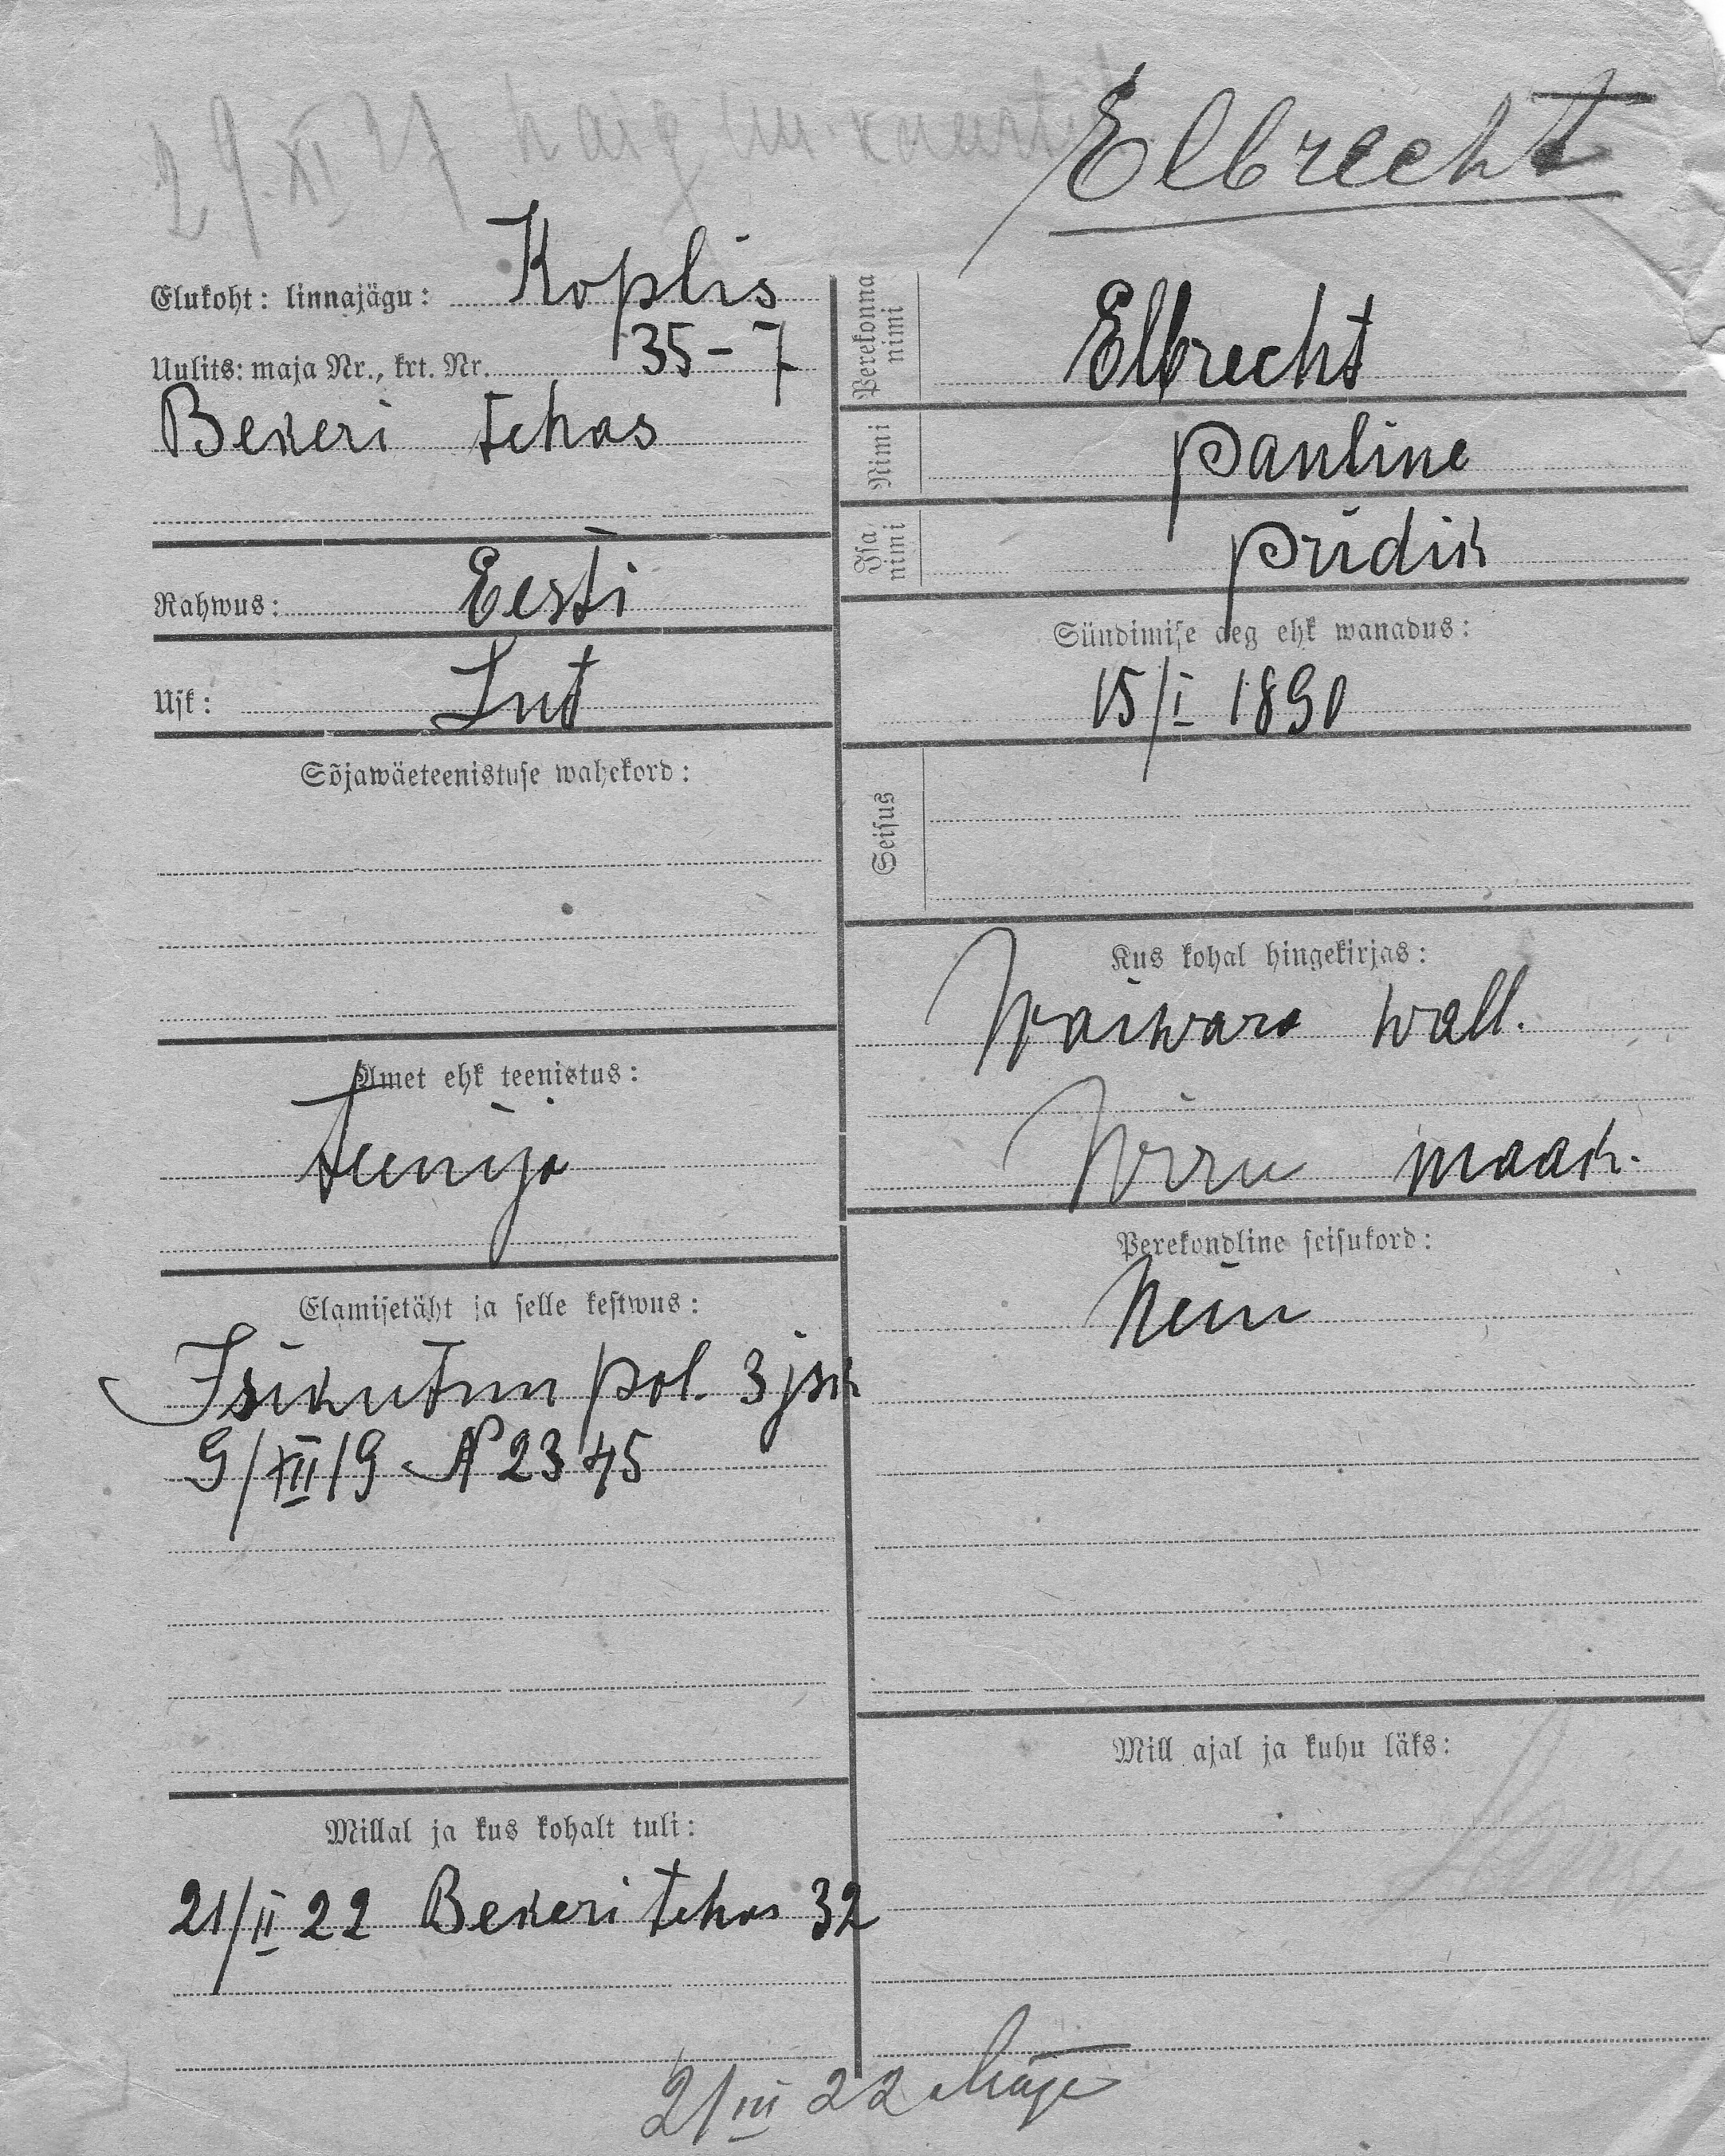 29.XI 27
Elbrecht
Elukoht: linnajägu: Koplis
Uulits: maja Nr., krt. Nr. 35-7
Bekeri tehas
Rahwus: Eesti
Usk: Lut
Sõjawäeteenistuse wahekord:
Amet ehk teenistus:
teenija
Elamisetäht ja selle kestwus:
Isikutun pol. 3 jsk
9/XII 19 № 2345
Millal ja kus kohalt tuli:
21/II 22 Bekeri tehas 32
Perekonna nimi Elbrecht
Nimi Pauline
Isa nimi Priidik
Sündimise aeg ehk wanadus:
15/I 1890
Seisus
Kus kohal hingekirjas:
Waiwara wall.
Wiru maak.
Perekondline seisukord:
Mill ajal ja kuhu läks:
21 III 22